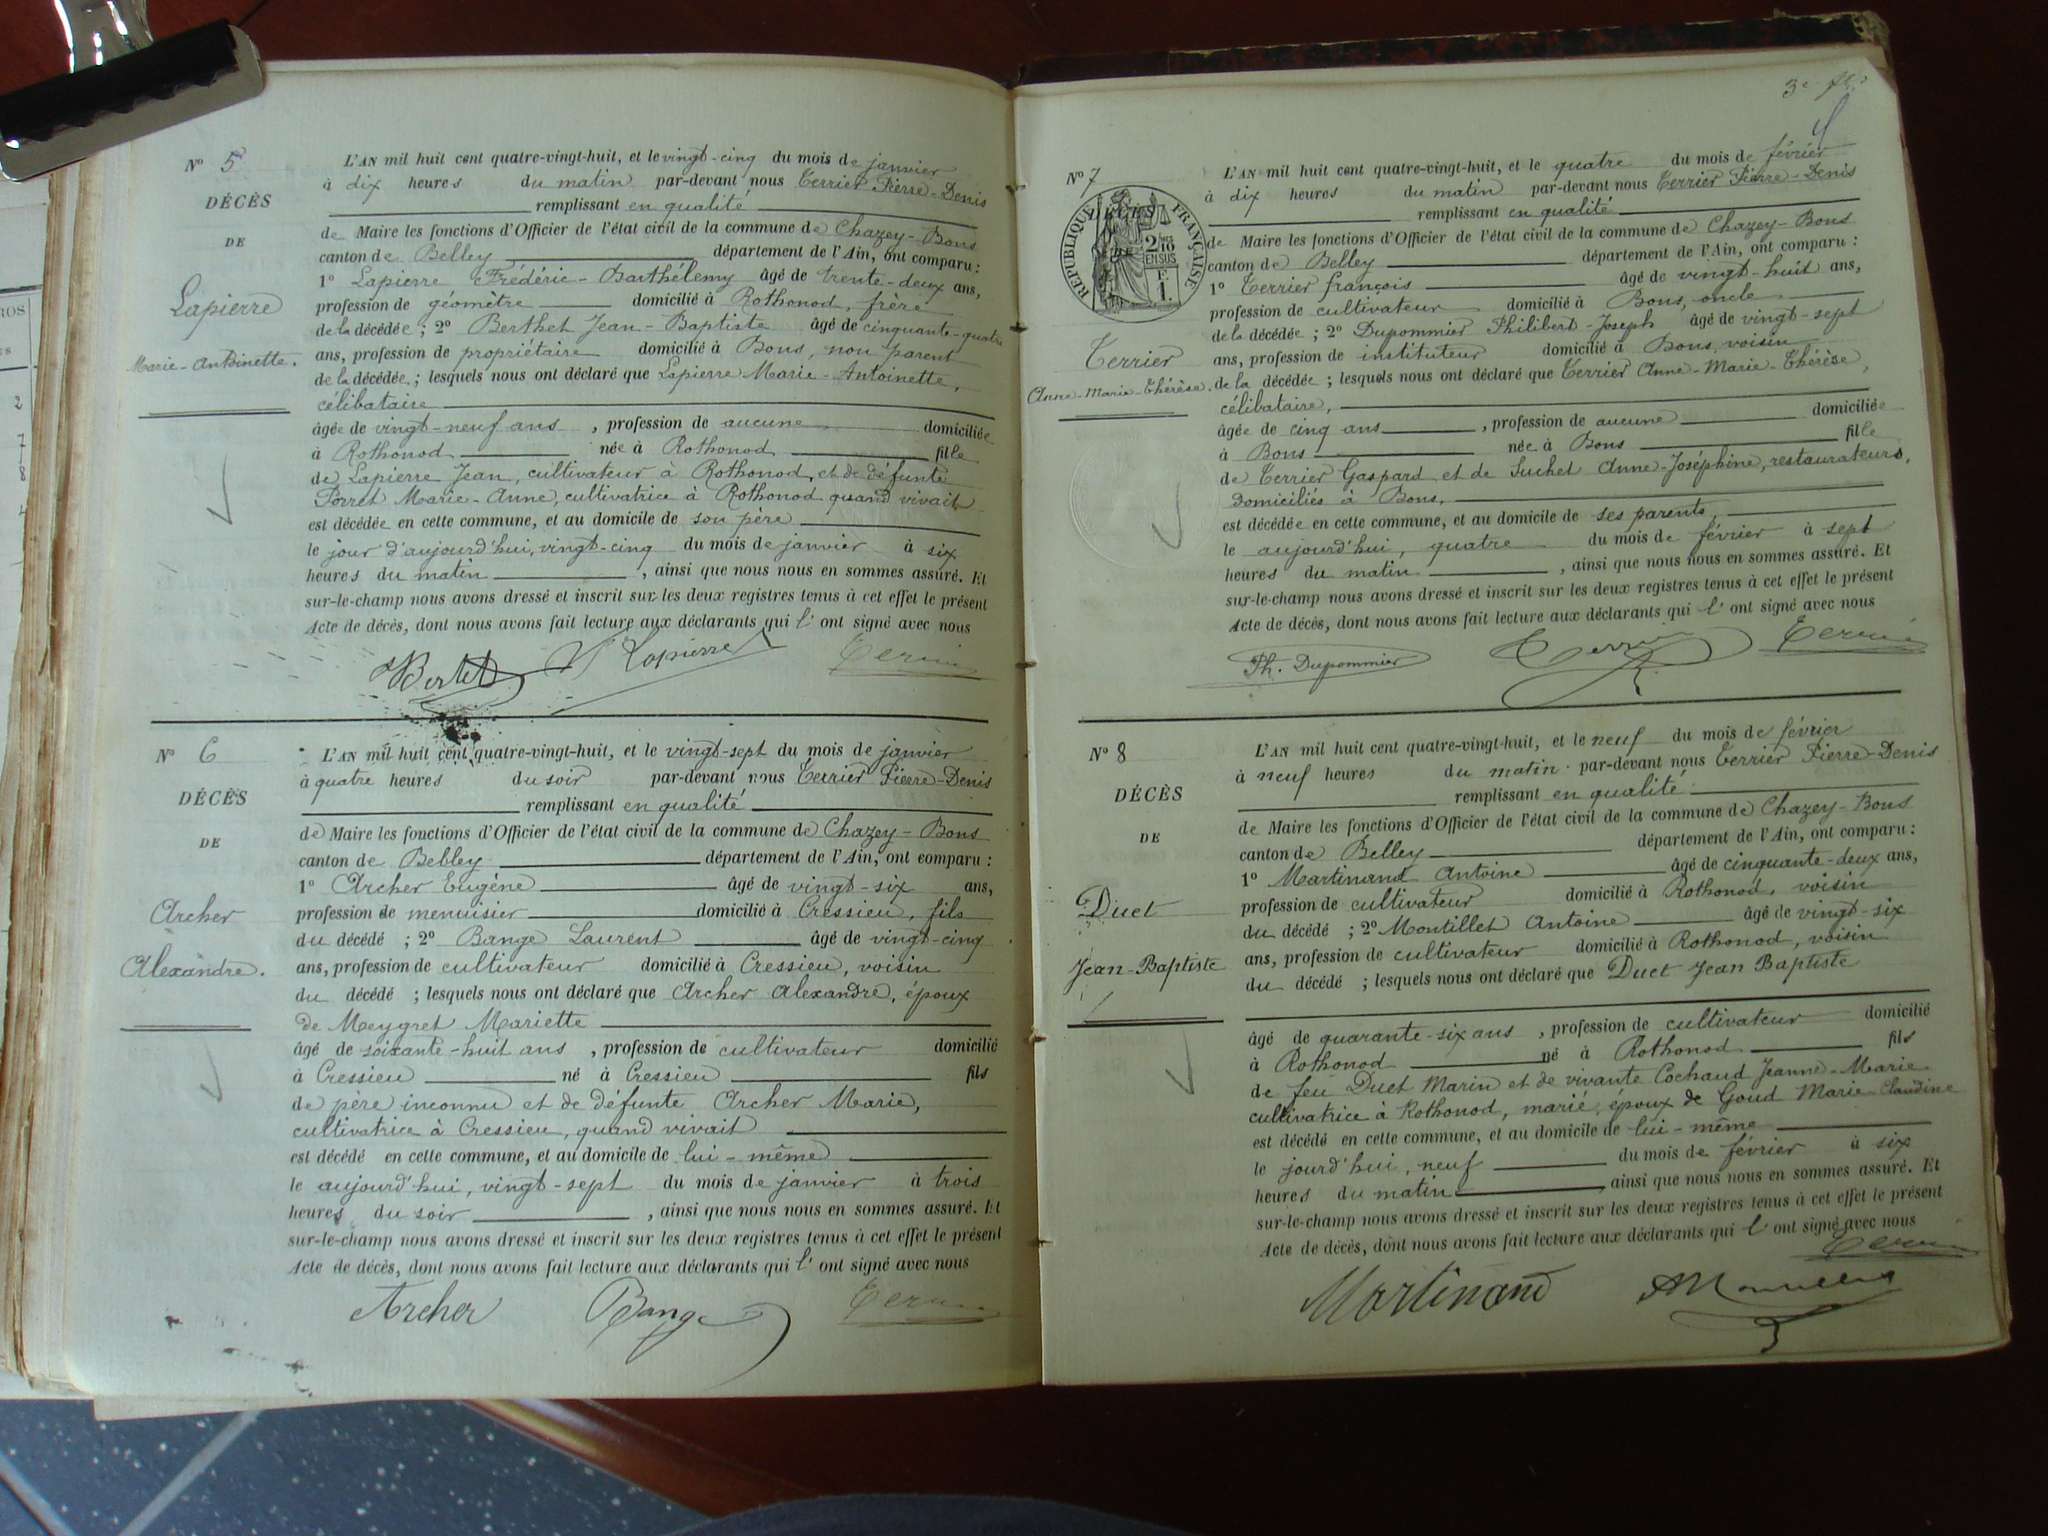 N° 5
DÉCÈS
DE
Lapierre
Marie-Antoinette.
L'AN mil huit cent quatre-vingt-huit, et le vingt-cinq du mois de janvier
à dix heures du matin par-devant nous Terrier Pierre-Denis
remplissant en qualité
de Maire les fonctions d'Officier de l'état civil de la commune de Chazey-Bons
canton de Belley département de l'Ain, ont comparu :
1° Lapierre Frédéric-Barthélemy âgé de trente-deux ans,
profession de géomètre domicilié à Rothonod, frère
de la décédée ; 2° Berthet Jean-Baptiste âgé de cinquante-quatre
ans, profession de propriétaire domicilié à Bons, non parent
de la décédée ; lesquels nous ont déclaré que Lapierre Marie-Antoinette,
célibataire
âgée de vingt-neuf ans , profession de aucune domiciliée
à Rothonod née à Rothonod fille
de Lapierre Jean, cultivateur à Rothonod, et de défunte
Porret Marie-Anne, cultivatrice à Rothonod quand vivait
est décédée en cette commune, et au domicile de son père
le jour d'aujourd'hui, vingt-cinq du mois de janvier à six
heures du matin , ainsi que nous nous en sommes assuré. Et
sur-le-champ nous avons dressé et inscrit sur les deux registres tenus à cet effet le présent
Acte de décès, dont nous avons fait lecture aux déclarants qui l' ont signé avec nous
Lapierre
N° 6
DÉCÈS
DE
Archer
Alexandre.
L'AN mil huit cent quatre-vingt-huit, et le vingt-sept du mois de janvier
à quatre heures du soir par-devant nous Terrier Pierre-Denis
remplissant en qualité
de Maire les fonctions d'Officier de l'état civil de la commune de Chazey-Bons
canton de Belley département de l'Ain, ont comparu :
1° Archer Eugène âgé de vingt-six ans,
profession de menuisier domicilié à Cressieu, fils
du décédé ; 2° Bange Laurent âgé de vingt-cinq
ans, profession de cultivateur domicilié à Cressieu, voisin
du décédé ; lesquels nous ont déclaré que Archer Alexandre, époux
de Meygret Mariette
âgé de soixante-huit ans , profession de cultivateur domicilié
à Cressieu né à Cressieu fils
de père inconnu et de défunte Archer Marie,
cultivatrice à Cressieu, quand vivait
est décédé en cette commune, et au domicile de lui-même
le aujourd'hui, vingt-sept du mois de janvier à trois
heures du soir , ainsi que nous nous en sommes assuré. Et
sur-le-champ nous avons dressé et inscrit sur les deux registres tenus à cet effet le présent
Acte de décès, dont nous avons fait lecture aux déclarants qui l' ont signé avec nous
Archer Bange
N° 7
RÉPUBLIQUE FRANÇAISE
2/10 EN SUS
Terrier
Anne-Marie-Thérèse.
L'AN mil huit cent quatre-vingt-huit, et le quatre du mois de février
à dix heures du matin par-devant nous Terrier Pierre-Denis
remplissant en qualité
de Maire les fonctions d'Officier de l'état civil de la commune de Chazey-Bons
canton de Belley département de l'Ain, ont comparu :
1° Terrier françois âgé de vingt-huit ans,
profession de cultivateur domicilié à Bons, oncle
de la décédée ; 2° Dupommier Philibert-Joseph âgé de vingt-sept
ans, profession de instituteur domicilié à Bons, voisin
de la décédée ; lesquels nous ont déclaré que Terrier Anne-Marie-Thérèse,
célibataire,
âgée de cinq ans , profession de aucune domiciliée
à Bons née à Bons fille
de Terrier Gaspard et de Suchet Anne-Joséphine, restaurateurs,
domiciliés à Bons,
est décédée en cette commune, et au domicile de ses parents,
le aujourd'hui, quatre du mois de février à sept
heures du matin , ainsi que nous nous en sommes assuré. Et
sur-le-champ nous avons dressé et inscrit sur les deux registres tenus à cet effet le présent
Acte de décès, dont nous avons fait lecture aux déclarants qui l' ont signé avec nous
Ph. Dupommier
N° 8
DÉCÈS
DE
Duet
Jean-Baptiste
L'AN mil huit cent quatre-vingt-huit, et le neuf du mois de février
à neuf heures du matin par-devant nous Terrier Pierre-Denis
remplissant en qualité
de Maire les fonctions d'Officier de l'état civil de la commune de Chazey-Bons
canton de Belley département de l'Ain, ont comparu :
1° Martinand Antoine âgé de cinquante-deux ans,
profession de cultivateur domicilié à Rothonod, voisin
du décédé ; 2° Montillet Antoine âgé de vingt-six
ans, profession de cultivateur domicilié à Rothonod, voisin
du décédé ; lesquels nous ont déclaré que Duet Jean Baptiste
âgé de quarante-six ans , profession de cultivateur domicilié
à Rothonod né à Rothonod fils
de feu Duet Marin et de vivante Cochaud Jeanne-Marie
cultivatrice à Rothonod, marié, époux de Goud Marie-Claudine
est décédé en cette commune, et au domicile de lui-même
le jourd'hui, neuf du mois de février à six
heures du matin ainsi que nous nous en sommes assuré. Et
sur-le-champ nous avons dressé et inscrit sur les deux registres tenus à cet effet le présent
Acte de décès, dont nous avons fait lecture aux déclarants qui l' ont signé avec nous
Martinand